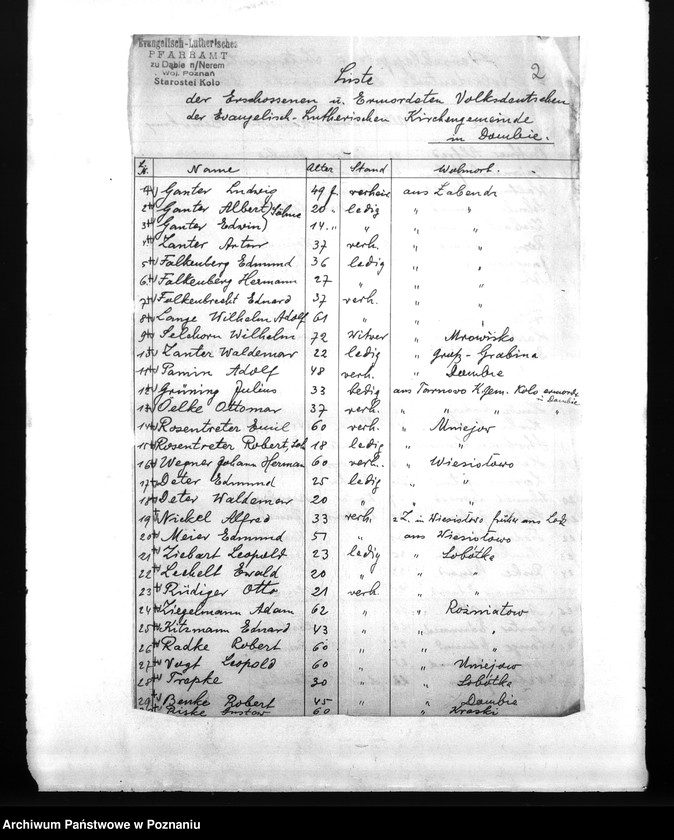 Evangelisch-Lutherisches
PFARRAMT
zu Dąbie n/Nerem
Woj. Poznań
Starostei Koło
2
Liste
der Erschossenen u. Ermordeten Volksdeutschen
der Evangelisch-Lutherischen Kirchengemeinde
in Dombie.
Name Alter Stand Wohnort.
1 Ganter Ludwig 49 j. verheir. aus Labendz
2 Ganter Albert) Söhne 20 " ledig " "
3 Ganter Edwin) 14 " " " "
4 Zanter Artur 37 verh. " "
5 Falkenberg Edmund 36 ledig " "
6 Falkenberg Hermann 27 " " "
7 Falkenbrecht Eduard 37 verh. " "
8 Lange Wilhelm Adolf 61 " " "
9 Selchorn Wilhelm 72 Witver " Mrowisko
10 Zanter Waldemar 22 ledig " Grabina
11 Pamin Adolf 48 verh. " Dombie
12 Grüning Julius 33 ledig aus Tarnowo Koło ermordet
in Dombie
13 Oelke Ottomar 37 verh. " " " "
14 Rosentreter Emil 60 verh. " Uniejow
15 Rosentreter Robert, 18 ledig " "
16 Wegner Johann Herman 60 verh. " Wiesistowo
17 Deter Edmund 25 ledig " "
18 Deter Waldemar 20 " " "
19 Nickel Alfred 33 verh. z Z. in Wiesistowo früher aus
20 Meier Edmund 51 " aus Wiesistowo
21 Ziebart Leopold 23 ledig " Sobótka
22 Lechelt Ewald 20 " " "
23 Rüdiger Otto 21 verh. " "
24 Ziegelmann Adam 62 " " Rożniatow
25 Kitzmann Eduard 43 " " "
26 Radke Robert 60 " " "
27 Vogt Leopold 60 " " Uniejow
28 Trapke 30 " " Sobótka
29 Benke Robert 45 " " Dombie
Gustow 60 " Kraski
Archiwum Państwowe w Poznaniu